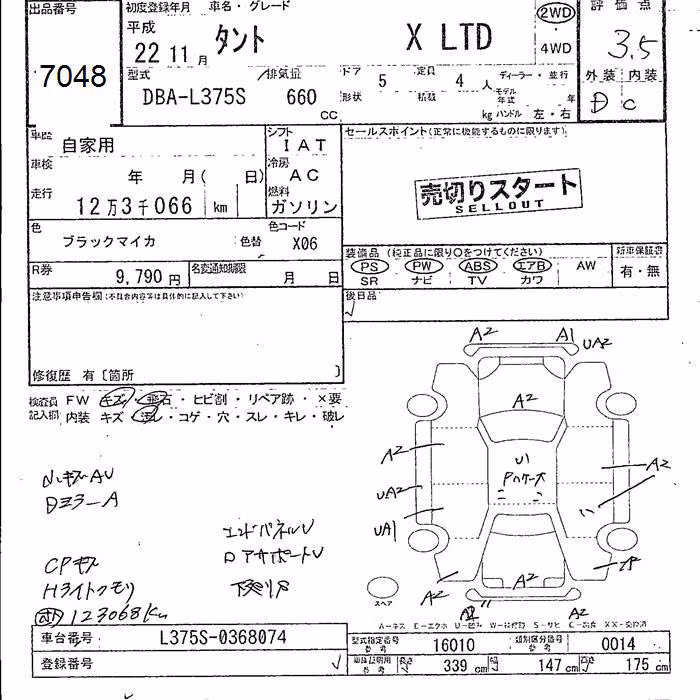 出品番号
7048
初度登録年月 車名・グレード
平成 22 11 月 タント X LTD
2WD
4WD
評価点
3.5
外装 内装
D C
型式 /排気量
DBA-L375S 660 CC
ドア 5 定員 4 人 ディーラー・並行
形状 積載 kg モデル年式 年 ハンドル 左・右
車歴 自家用
シフト IAT
車検 年 月( 日)
冷房 AC
走行 12万3千066 km
燃料 ガソリン
色 ブラックマイカ 色替
色コード X06
R券 9,790 円
名変通知期限 月 日
セールスポイント(正常に機能するものに限ります)
売切りスタート
SELLOUT
装備品 (純正品に限り○をつけてください)
PS PW ABS エアB AW
SR ナビ TV カワ
新車保証書
有・無
後日品
注意事項申告欄(不具合内容等は具体的に記入して下さい)
修復歴 有〔箇所 〕
検査員記入欄 FW キズ・飛石・ヒビ割・リペア跡・×要
内装 キズ・汚レ・コゲ・穴・スレ・キレ・破レ
A2 A1 UA2
A2
A2
U1
A2
UA2
UA1
A2
A2
A2
A2
スペア
CPキズ
Hライトクモリ
エンドパネルU
123068Km
A-キズ E-エクボ U-凹み W-補修跡 S-サビ C-腐食 XX-交換済
車台番号 L375S-0368074
登録番号
型式指定番号 参考 16010
類別区分番号 参考 0014
車庫証明用 参考 長さ 339 cm 幅 147 cm 高さ 175 cm